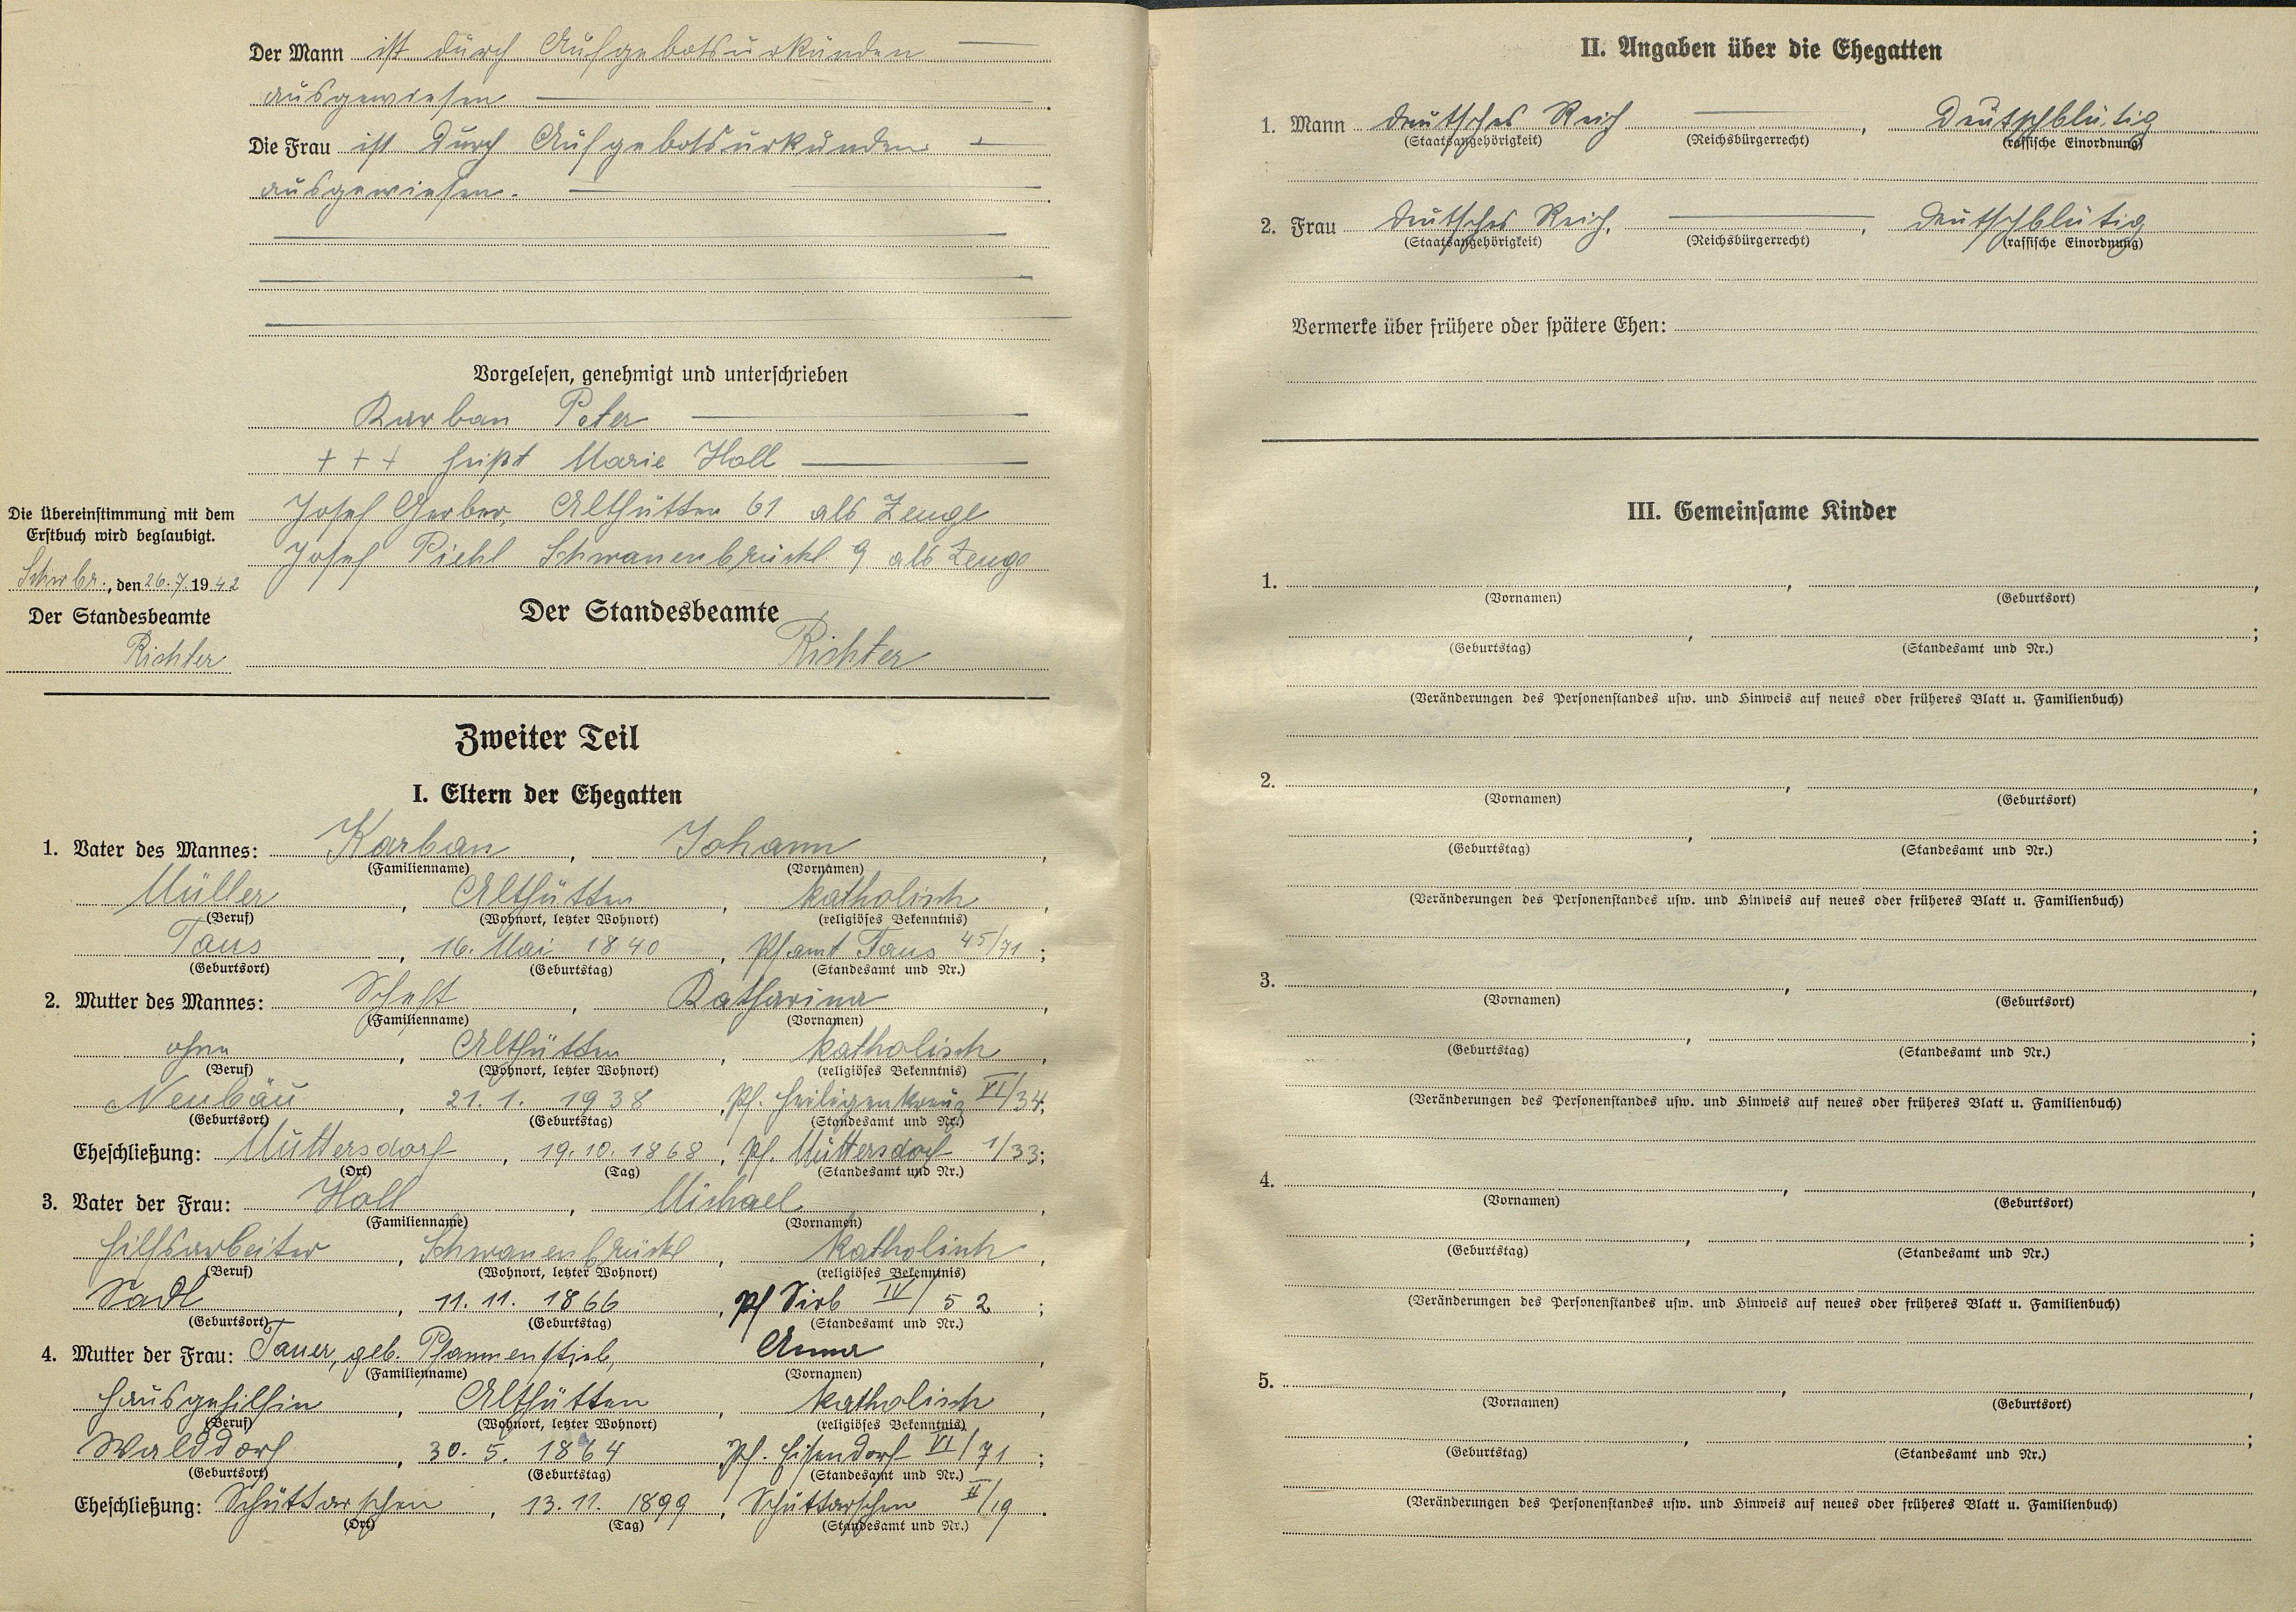 Der Mann ist durch Aufgebotsurkunden
ausgewiesen
Die Frau ist durch Aufgebotsurkunden
ausgewiesen.
Vorgelesen, genehmigt und unterschrieben
Karban Peter
+ + + heißt Marie Holl
Josef Gerber, Althütten 61 als Zeuge
Josef Piehl Schwanenbrückl 9 als Zeuge
Die Übereinstimmung mit dem
Erstbuch wird beglaubigt.
Schwbr., den 26.7.1942
Der Standesbeamte
Richter
Der Standesbeamte
Richter
Zweiter Teil
I. Eltern der Ehegatten
1. Vater des Mannes: Karban, Johann,
(Familienname) (Vornamen)
Müller, Althütten, katholisch,
(Beruf) (Wohnort, letzter Wohnort) (religiöses Bekenntnis)
Taus, 16. Mai 1840, Pfamt Taus 45/71;
(Geburtsort) (Geburtstag) (Standesamt und Nr.)
2. Mutter des Mannes: Katharina,
(Familienname) (Vornamen)
ohne, Althütten, katholisch,
(Beruf) (Wohnort, letzter Wohnort) (religiöses Bekenntnis)
Neubäu, 21. 1. 1938, Pf. Heiligenkreuz VI/34;
(Geburtsort) (Geburtstag) (Standesamt und Nr.)
Eheschließung: Muttersdorf, 19.10.1868, Pf. Muttersdorf 1/33;
(Ort) (Tag) (Standesamt und Nr.)
3. Vater der Frau: Holl, Michael,
(Familienname) (Vornamen)
Hilfsarbeiter, Schwanenbrückl, katholisch,
(Beruf) (Wohnort, letzter Wohnort) (religiöses Bekenntnis)
Sadl, 11. 11. 1866, Pf Sirb IV/52;
(Geburtsort) (Geburtstag) (Standesamt und Nr.)
4. Mutter der Frau: Tauer, geb. Pfannenstiel, Anna,
(Familienname) (Vornamen)
Hausgehilfin, Althütten, katholisch,
(Beruf) (Wohnort, letzter Wohnort) (religiöses Bekenntnis)
Walddorf, 30. 5. 1864, Pf. Eisendorf VI/71;
(Geburtsort) (Geburtstag) (Standesamt und Nr.)
Eheschließung: Schüttarschen, 13. 11. 1899, Schüttarschen II/19.
(Ort) (Tag) (Standesamt und Nr.)
II. Angaben über die Ehegatten
1. Mann deutsches Reich, deutschblütig
(Staatsangehörigkeit) (Reichsbürgerrecht) (rassische Einordnung)
2. Frau deutsches Reich, deutschblütig
(Staatsangehörigkeit) (Reichsbürgerrecht) (rassische Einordnung)
Vermerke über frühere oder spätere Ehen:
III. Gemeinsame Kinder
1. , ,
(Vornamen) (Geburtsort)
, ;
(Geburtstag) (Standesamt und Nr.)
(Veränderungen des Personenstandes usw. und Hinweis auf neues oder früheres Blatt u. Familienbuch)
2. , ,
(Vornamen) (Geburtsort)
, ;
(Geburtstag) (Standesamt und Nr.)
(Veränderungen des Personenstandes usw. und Hinweis auf neues oder früheres Blatt u. Familienbuch)
3. , ,
(Vornamen) (Geburtsort)
, ;
(Geburtstag) (Standesamt und Nr.)
(Veränderungen des Personenstandes usw. und Hinweis auf neues oder früheres Blatt u. Familienbuch)
4. , ,
(Vornamen) (Geburtsort)
, ;
(Geburtstag) (Standesamt und Nr.)
(Veränderungen des Personenstandes usw. und Hinweis auf neues oder früheres Blatt u. Familienbuch)
5. , ,
(Vornamen) (Geburtsort)
, ;
(Geburtstag) (Standesamt und Nr.)
(Veränderungen des Personenstandes usw. und Hinweis auf neues oder früheres Blatt u. Familienbuch)